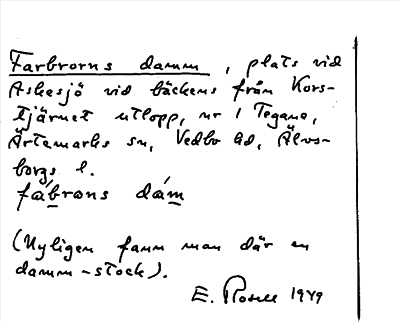 Farbrorns damm, plats vid
Askesjö vid bäckens från Kors-
tjärnet utlopp, nr 1 Tegane,
Ärtemarks sn, Vedbo hd, Älvs-
borgs l.
fábrans dám
(Nyligen fann man där en
damm-stock).
E. Rosell 1949